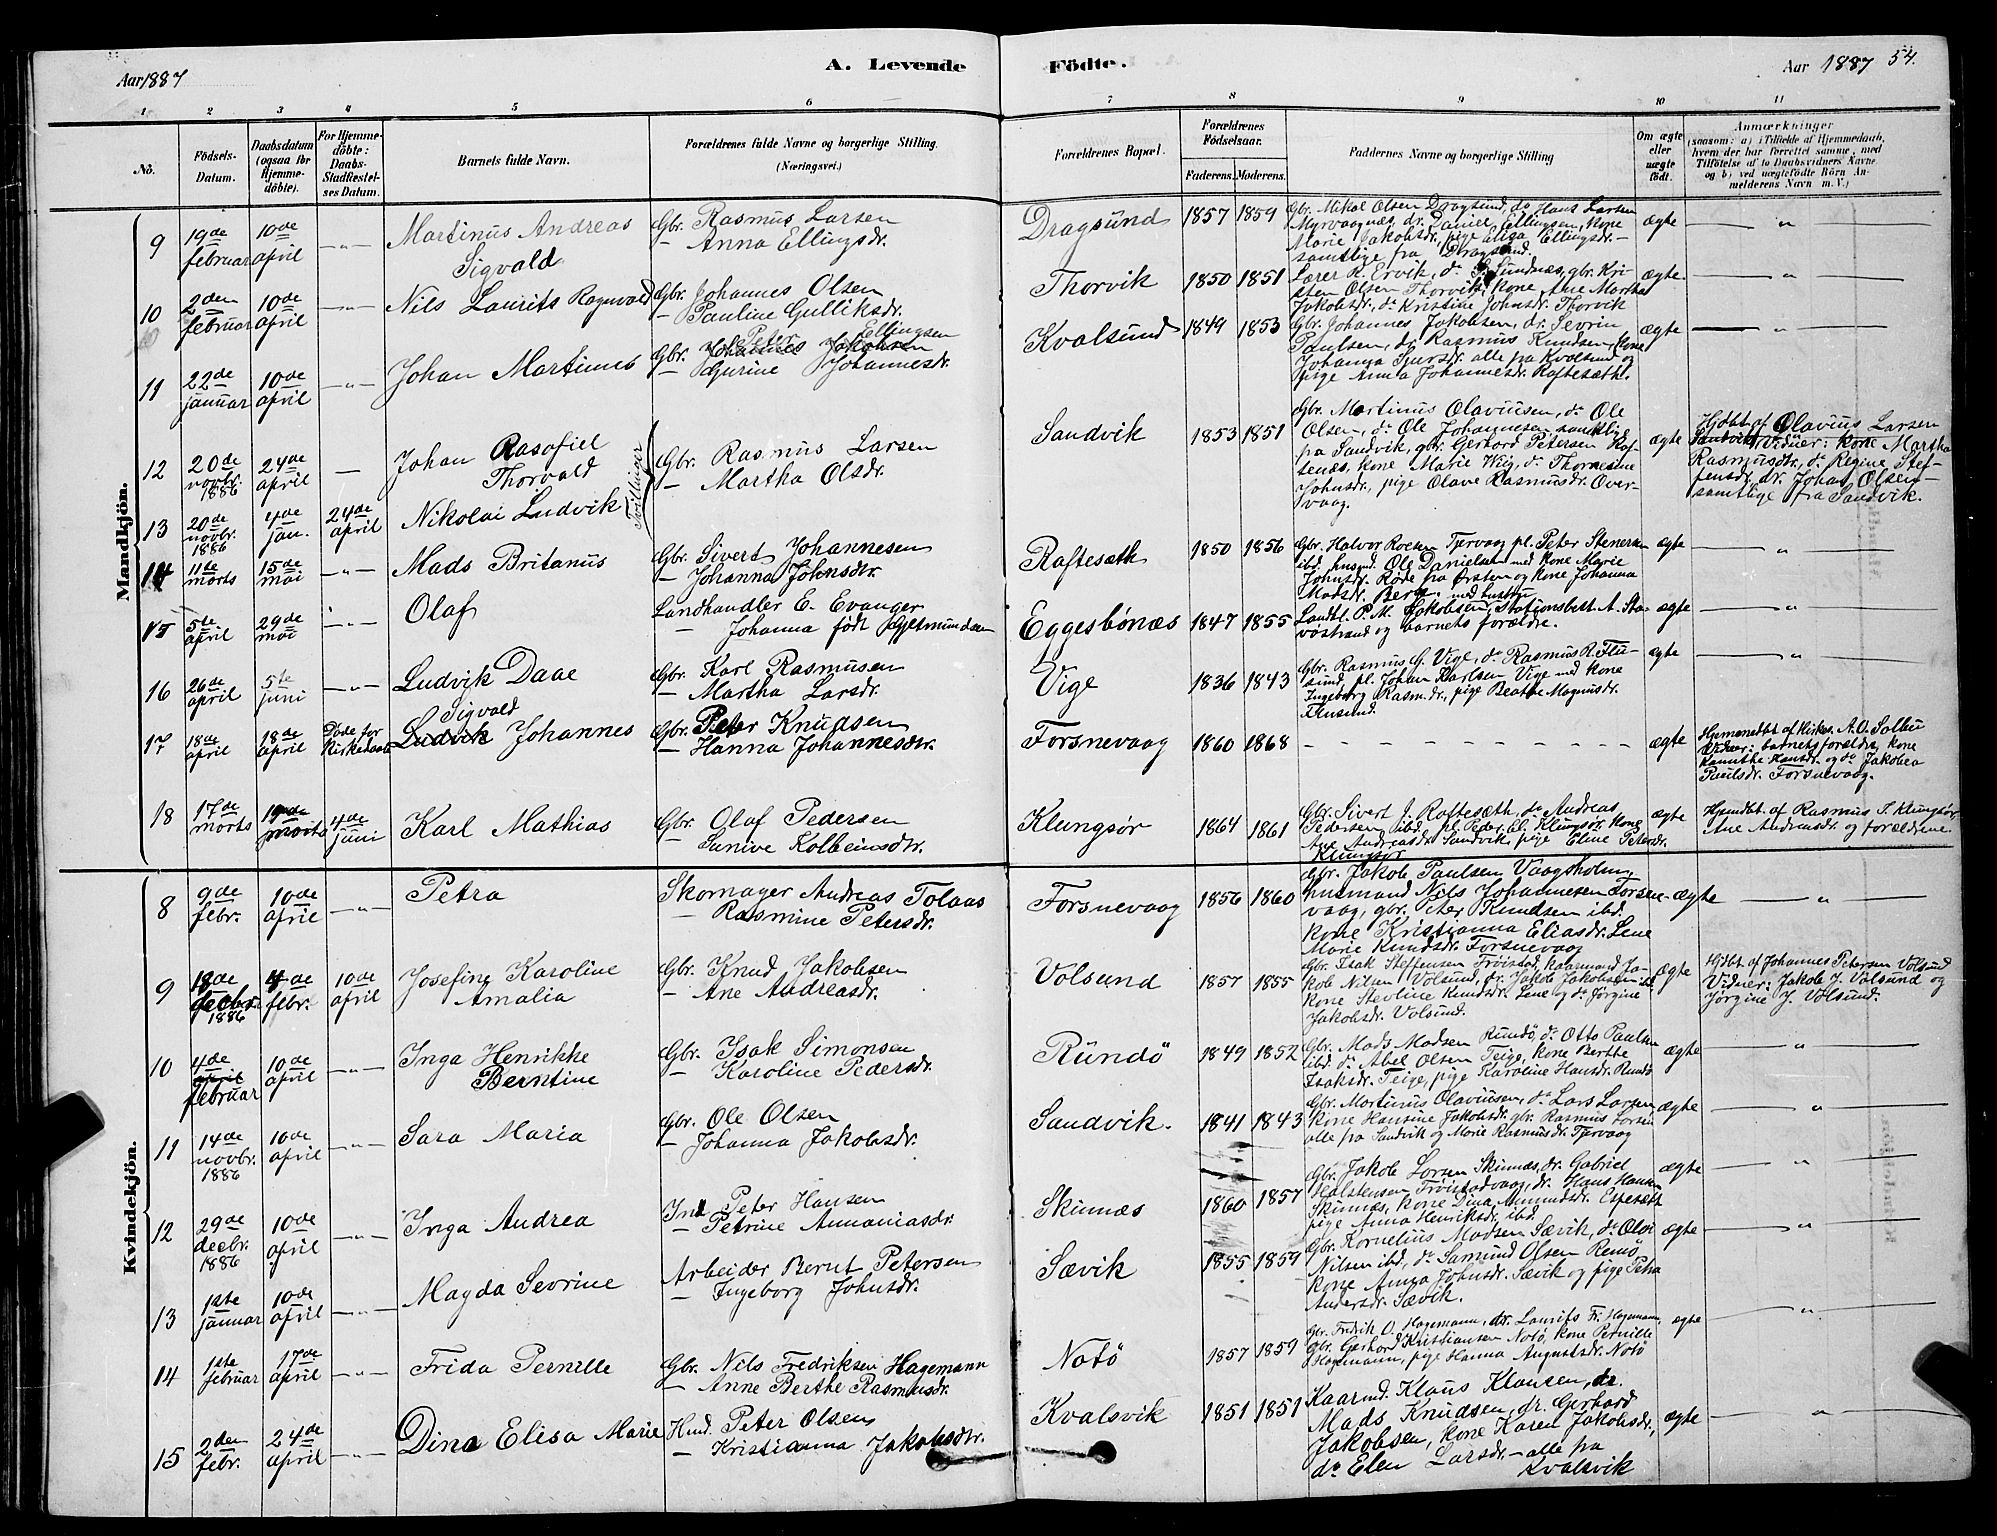 Aar 1887
A. Levende
Födte.
Aar 1887
54.
1 2 3 4 5 6 7 8 9 10 11
No.
Födsels-
Datum.
Daabsdatum
(ogsaa for
Hjemme-
döbte).
For Hjemme-
döbte:
Daabs-
Stadfæstel-
ses Datum.
Barnets fulde Navn.
Forældrenes fulde Navne og borgerlige Stilling.
(Næringsvei.)
Forældrenes Bopæl.
Forældrenes
Födselsaar.
Faderens. Moderens.
Faddernes Navne og borgerlige Stilling
Om ægte
eller
uægte
födt.
Anmærkninger
(saasom: a) i Tilfælde af Hjemmedaab,
hvem der har forrettet samme, med
Tilföielse af to Daabsvidners Navne.
og b) ved uægtefödte Börn An-
melderens Navn m. V.)
Mandkjön.
9
19de
februar
10de
april
— „ —
Martinus Andreas
Sigvald
Gbr. Rasmus Larsen
— Anna Ellingsdr.
Dragsund
1857 1859
Gbr. Mikal Olsen Dragsund, do Hans Larsen
Myrvaagnæs, dr. Daniel Ellingsen, kone
Marie Jakobsdr., pige Elisa Ellingsdr. —
samtlige fra Dragsund.
ægte
— „ —
10
2den
februar
10de
april
— „ —
Nils Laurits Ragnvald
Gbr. Johannes Olsen
— Pauline Gulliksdr.
Thorvik
1850 1851
Lærer R. Ervik, do Sundnæs, gbr. Kri-
sten Olsen Thorvik, kone Ane Martha
Jakobsdr., do Kristine Johnsdr. Thorvik
ægte
— „ —
11
22de
januar
10de
april
— „ —
Johan Martinus
Peter Ellingsen
Gbr. Johannes Jakobsen
— Gurine Johannesdr.
Kvalsund
1849 1853
Gbr. Johannes Jakobsen, dr. Sevrin
Paulsen, do Rasmus Knudsen, kone
Johanna Sjursdr. alle fra Kvalsund og
pige Anna Johannesdr. Raftesæth.
ægte
— „ —
12
20de
novbr.
1886
24de
april
—
Johan Rasafiel
Thorvald
Tvillinger
Gbr. Rasmus Larsen
— Martha Olsdr.
Sandvik
1853 1851
Gbr. Martinus Olaviusen, do Ole
Olsen, do Ole Johannesen samtlige
fra Sandvik, gbr. Gerhard Petersen Raf-
senæs, kone Marie Wiig, do Thornesine
Johnsdr., pige Olave Rasmusdr. Over-
vaag.
ægte
Hjdbt. af Olavius Larsen
Sandvik, Vidner: kone Martha
Rasmusdtr., do Regine Stef-
fensdr, dr. Johan Olsen —
samtlige fra Sandvik.
13
20de
novbr.
1886
4de
jan.
24de
april
Nikolai Ludvik
14
11de
marts
15de
mai
— „ —
Mads Britanus
Gbr. Sivert Johannesen
— Johanna Johnsdtr.
Raftesæth
1850 1856
Gbr. Halvor Rocken Tjervaag pl. Peter Stenersen
ibd. husmd. Ole Danielsen med kone Marie
Johnsdr. Røde fra Ørsten og kone Johanna
Madsdr. Berg.
ægte
— „ —
15
5te
april
29de
mai
— „ —
Olaf
Landhandler E. Evanger
— Johanna født Gjetmundsen
Eggesbönæs
1847 1855
med hustru
Landhl. P. M. Jakobsen, Stationsbest. A. Sta-
vöstrand og barnets forældre.
ægte
— „ —
16
26de
april
5te
juni
— „ —
Ludvik Daae
Gbr. Karl Rasmusen
— Martha Larsdr.
Vige
1836 1843
Gbr. Rasmus G. Vige, do Rasmus R. Flu-
sund, pl. Johan Karlsen Vige med kone
Ingeborg Rasm.dr., pige Beathe Magnusdr.
Flusund.
ægte
— „ —
17
18de
april
18de
april
Døde før
kirkedaab
Sigvald
Ludvik Johannes
Gbr. Peter Knudsen
— Hanna Johannesdtr.
Forsnevaag
1860 1868
- - - - - - - - - -
ægte
Hjemmedbt. af Kirkes. A. O. Solbu
Vidner: barnets forældre, kone
Hansdr. og do Jakobea
Paulsdr. Forsnevaag.
18
17de
marts
19de
marts
4de
juni
Karl Mathias
Gbr. Olaf Pedersen
— Sunive Kolbeinsdtr.
Klungsör
1864 1861
Gbr. Sivert J. Raftesæth, do Andreas
Pedersen ibd. pl. Peder El. Klungsör, kone
Ane Andreasdr. Sandvik, pige Eline Petersdr.
Klungsör
ægte
Hjmdbt. af Rasmus T. Klungsör
Ane Andreasdr. og forældrene
Kvindekjön.
8
9de
febr.
10de
april
— „ —
Petra
Skomager Andreas Tolaas
— Rasmine Petersdr.
Forsnevaag
1856 1860
Gbr. Jakob Paulsen Vaagsholm,
husmand Nils Johannesen Forsne-
vaag, gbr. Peter Knudsen ibd.
kone Kristianna Eliasdr. Lene
Marie Knudsdr. Forsnevaag
ægte
— „ —
9
18de
decbr.
1886
4de
febr.
10de
april
Josefine Karoline
Amalia
Gbr. Knud Jakobsen
— Ane Andreasdr.
Volsund
1857 1855
Gbr. Isak Steffensen Fröistad, kaarmand Ja-
kob Nilsen Volsund, do Jakob Jakobsen ibd
kone Stevline Knudsdr. Lene og do Jörgine
Jakobsdr. Volsund.
ægte
Hjdbt. af Johannes Petersen Volsund
Vidner: Jakob J. Volsund og
Jörgine J. Volsund.
10
4de
april
februar
10de
april
— „ —
Inga Henrikke
Berntine
Gbr. Isak Simonsen
— Karoline Pedersdr.
Rundö
1849 1852
Gbr. Mads Madsen Rundö, do Otto Paulsen
ibd. do Abel Olsen Teige, kone Berthe
Isaksdr. Teige, pige Karoline Hansdr. Rundö
ægte
— „ —
11
14de
novbr.
1886
10de
april
— „ —
Sara Maria
Gbr. Ole Olsen
— Johanna Jakobsdr.
Sandvik.
1841 1843
Gbr. Martinus Olaviusen, do Lars Larsen
kone Hansine Jakobsdr. gbr. Rasmus Larsen
alle fra Sandvik og Marie Rasmusdr. Tjervaag
ægte
— „ —
12
29de
decbr.
1886
10de
april
— „ —
Inga Andrea
Ind. Peter Hansen
— Petrine Annaniasdr.
Skinnæs
1860 1857
Gbr. Jakob Larsen Skinnæs, dr. Gabriel
Halstensen Fröistadvaag, dr. Hans Hansen
Skinnæs, kone Dina Amundsdr. Espesæth
pige Anna Henriksdr. ibd.
ægte
— „ —
13
1ste
januar
10de
april
— „ —
Magda Sevrine
Arbeider Bernt Petersen
— Ingeborg Johnsdr.
Sævik
1855 1859
Gbr. Kornelius Madsen Sævik, do Olai
Nilsen ibd, do Samund Olsen Remö,
kone Anna Johnsdr. Sævik og pige Petra
Andersdr. Sævik.
ægte
— „ —
14
1ste
februar
17de
april
— „ —
Frida Pernille
Gbr. Nils Fredriksen Hagemann
— Anne Berthe Rasmusdr.
Notö
1857 1859
Gbr. Fredrik O. Hagemann, dr. Laurits Fr. Hagemann,
gbr. Gerhard Kristiansen Notö, kone Pernille
Hagemann, pige Hanna Augustsdr. Notö
ægte
— „ —
15
2den
febr.
24de
april
— „ —
Dina Elisa Marie
Hmd. Peter Olsen
— Kristianna Jakobsdtr.
Kvalsvik
1851 1851
Kaarmd. Klaus Klausen, dr.
Mads Knudsen, dr. Gerhard
Jakobsen, kone Karen Jakobsdr,
do Elen Larsdr. — alle fra
Kvalsvik
ægte
— „ —